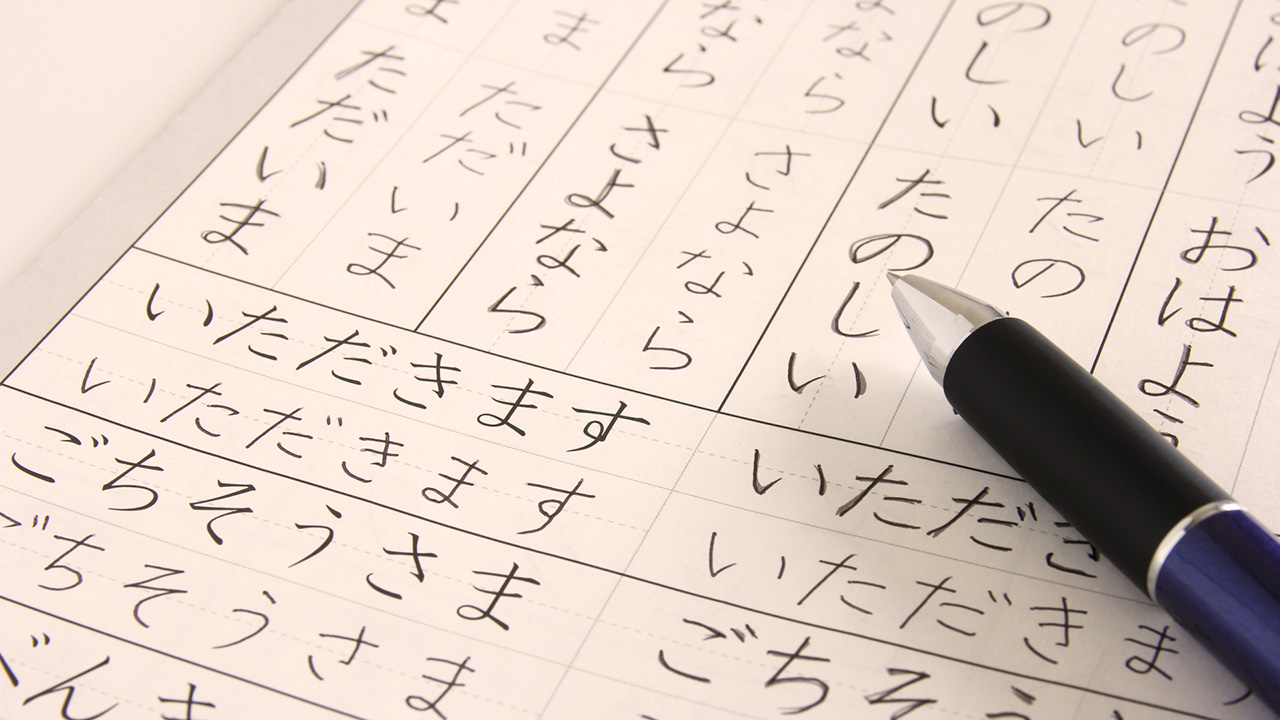 はよう
おはよう
のしい
たの
のしい
たのしい
なら
さよなら
なら
さよなら
ま
ただいま
ま
ただいま
いただきます
いただきます
ごちそうさま
ごちそうさま
いただき
いただきま
ごちそ